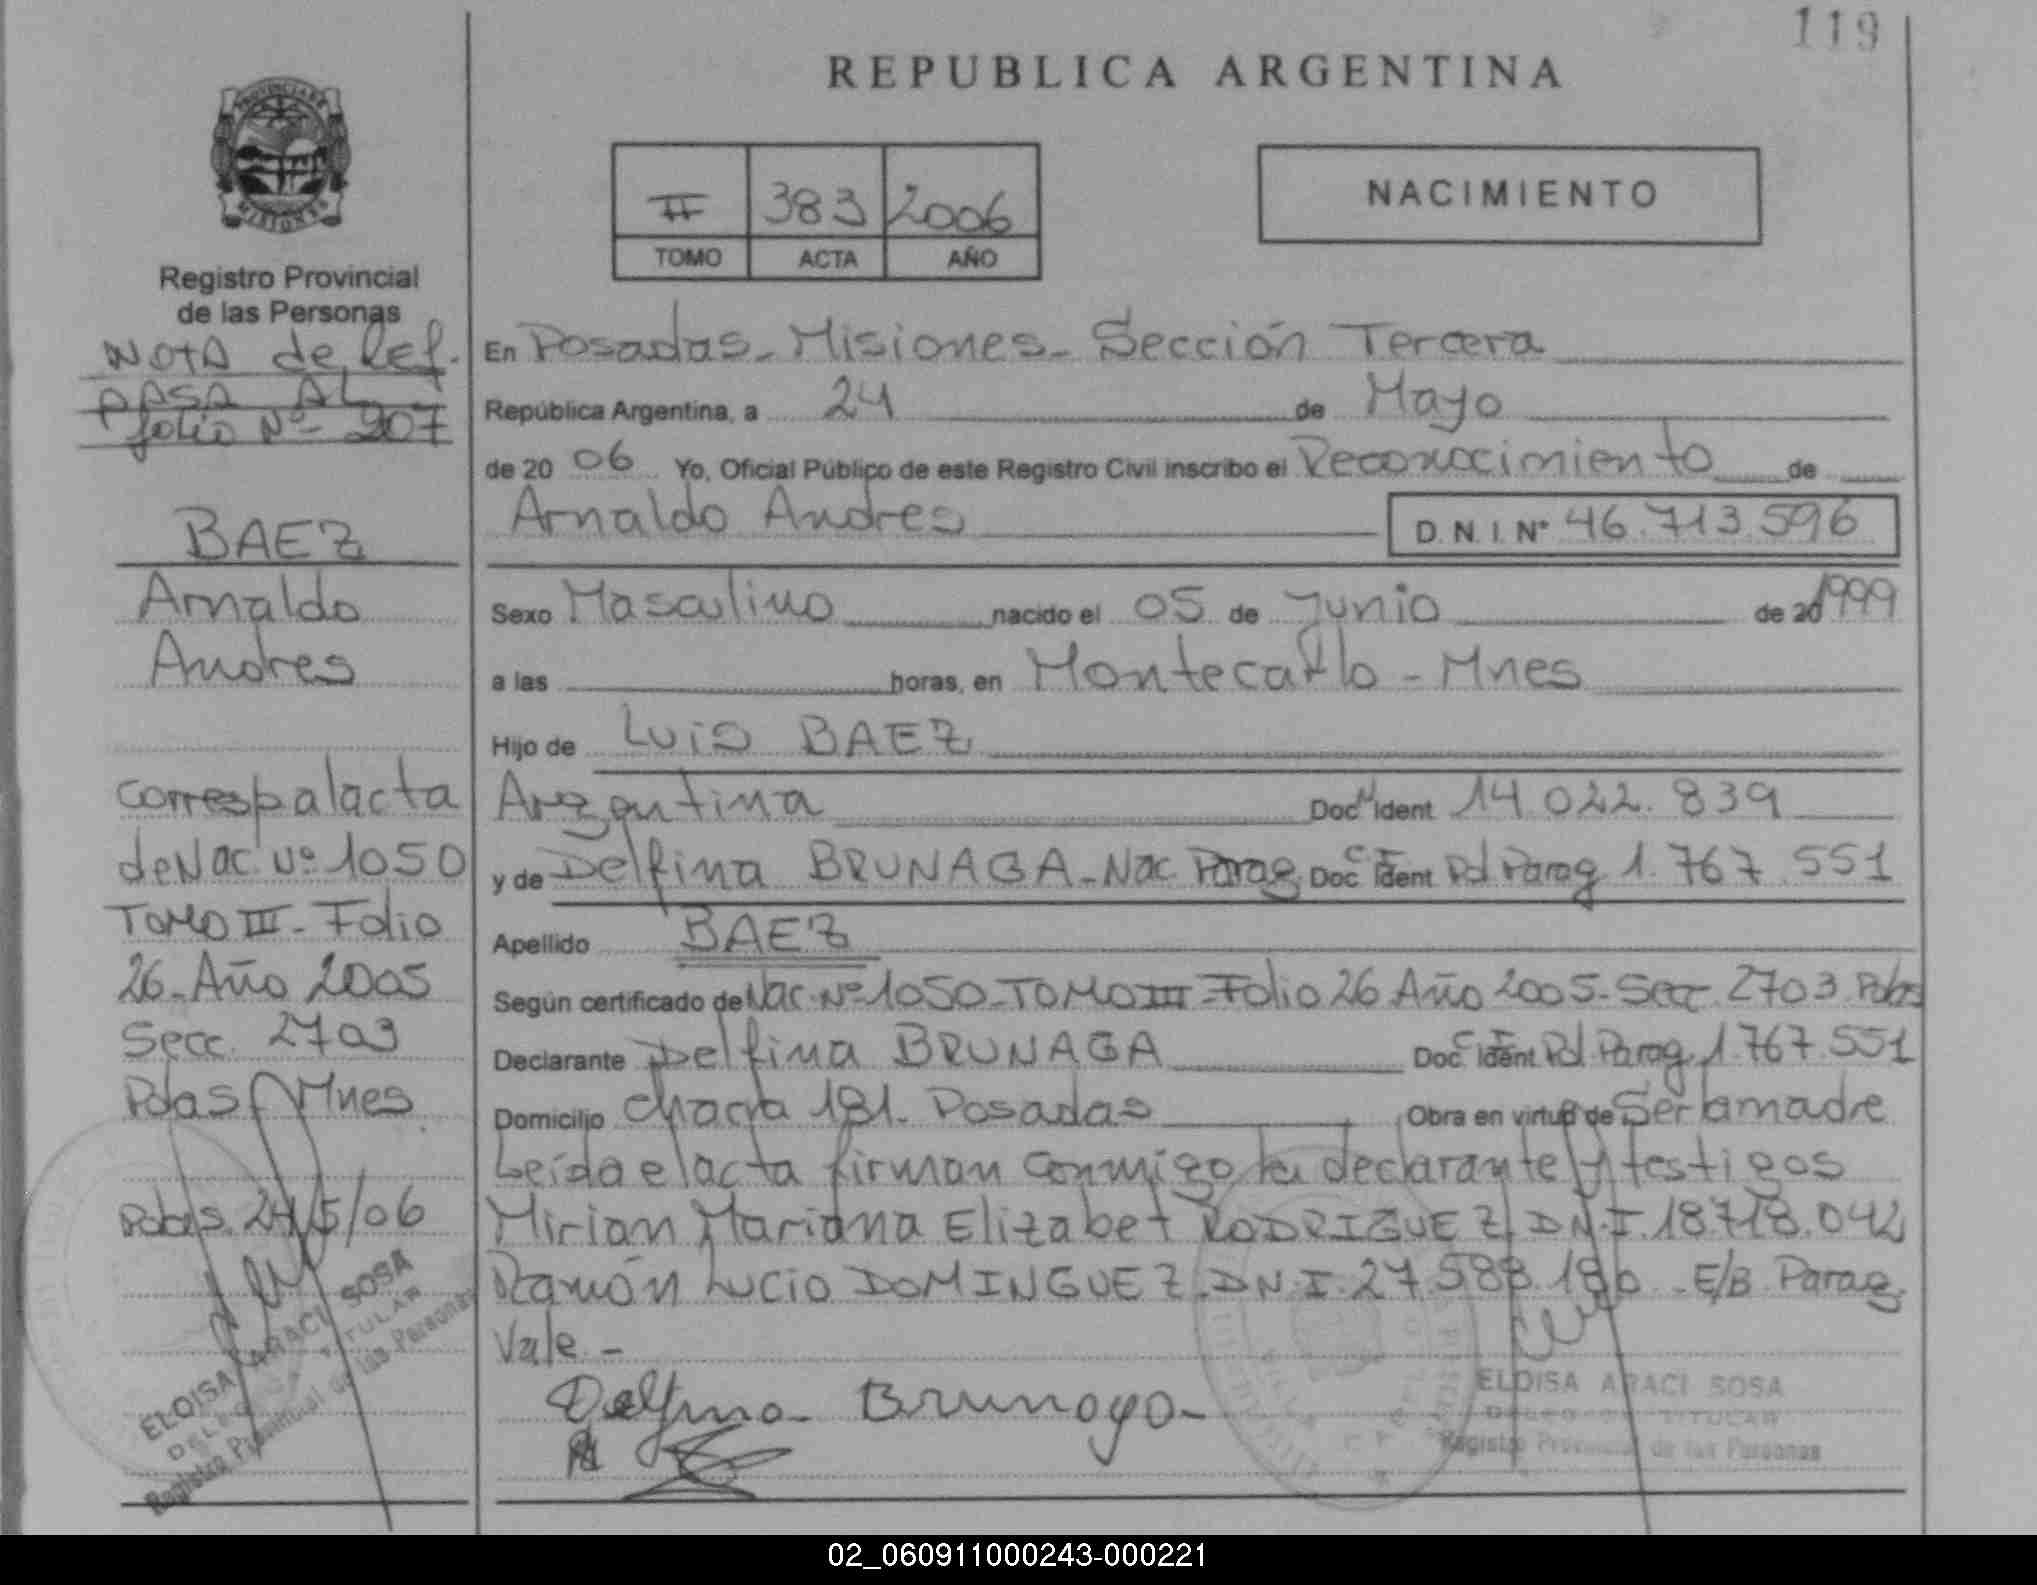 119
REPUBLICA ARGENTINA
II 383 2006
TOMO ACTA AÑO
NACIMIENTO
Registro Provincial
de las Personas
NOTA de Ref.
PASA AL
folio Nº 207
BAEZ
Arnaldo
Andres
corresp a lacta
de Nac Nº 1050
TOMO III - Folio
26 - Año 2005
Secc. 2703
Pdas Mnes
Pdas 24/5/06
ELOISA ARACI SOSA
TITULAR
Registro Provincial de las Personas
En Posadas - Misiones - Sección Tercera
República Argentina, a 24 de Mayo
de 20 06 Yo, Oficial Público de este Registro Civil inscribo el Reconocimiento de
Arnaldo Andres D.N.I. Nº 46.713.596
Sexo Masculino nacido el 05 de Junio de 20 1999
a las horas, en Montecarlo - Mnes
Hijo de Luis BAEZ
Argentina Doc. Ident 14.022.839
y de Delfina BRUNAGA - Nac Parag. Doc. C.I. Ident Pd Parag 1.767.551
Apellido BAEZ
Según certificado de Nac. Nº 1050 - TOMO III - Folio 26 Año 2005 - Secc. 2703 Pdas
Declarante Delfina BRUNAGA Doc. C.I. Ident Pd. Parag. 1.767.551
Domicilio chacra 181 - Posadas Obra en virtud de Ser la madre
Leída el acta firman conmigo la declarante y testigos
Mirian Mariana Elizabet RODRIGUEZ D.N.I. 18.718.042
Ramón Lucio DOMINGUEZ - D.N.I. 27.588.180 - E/B Parag.
Vale. -
Delfina Brunaga
ELOISA ARACI SOSA
TITULAR
Registro Provincial de las Personas
02_060911000243-000221